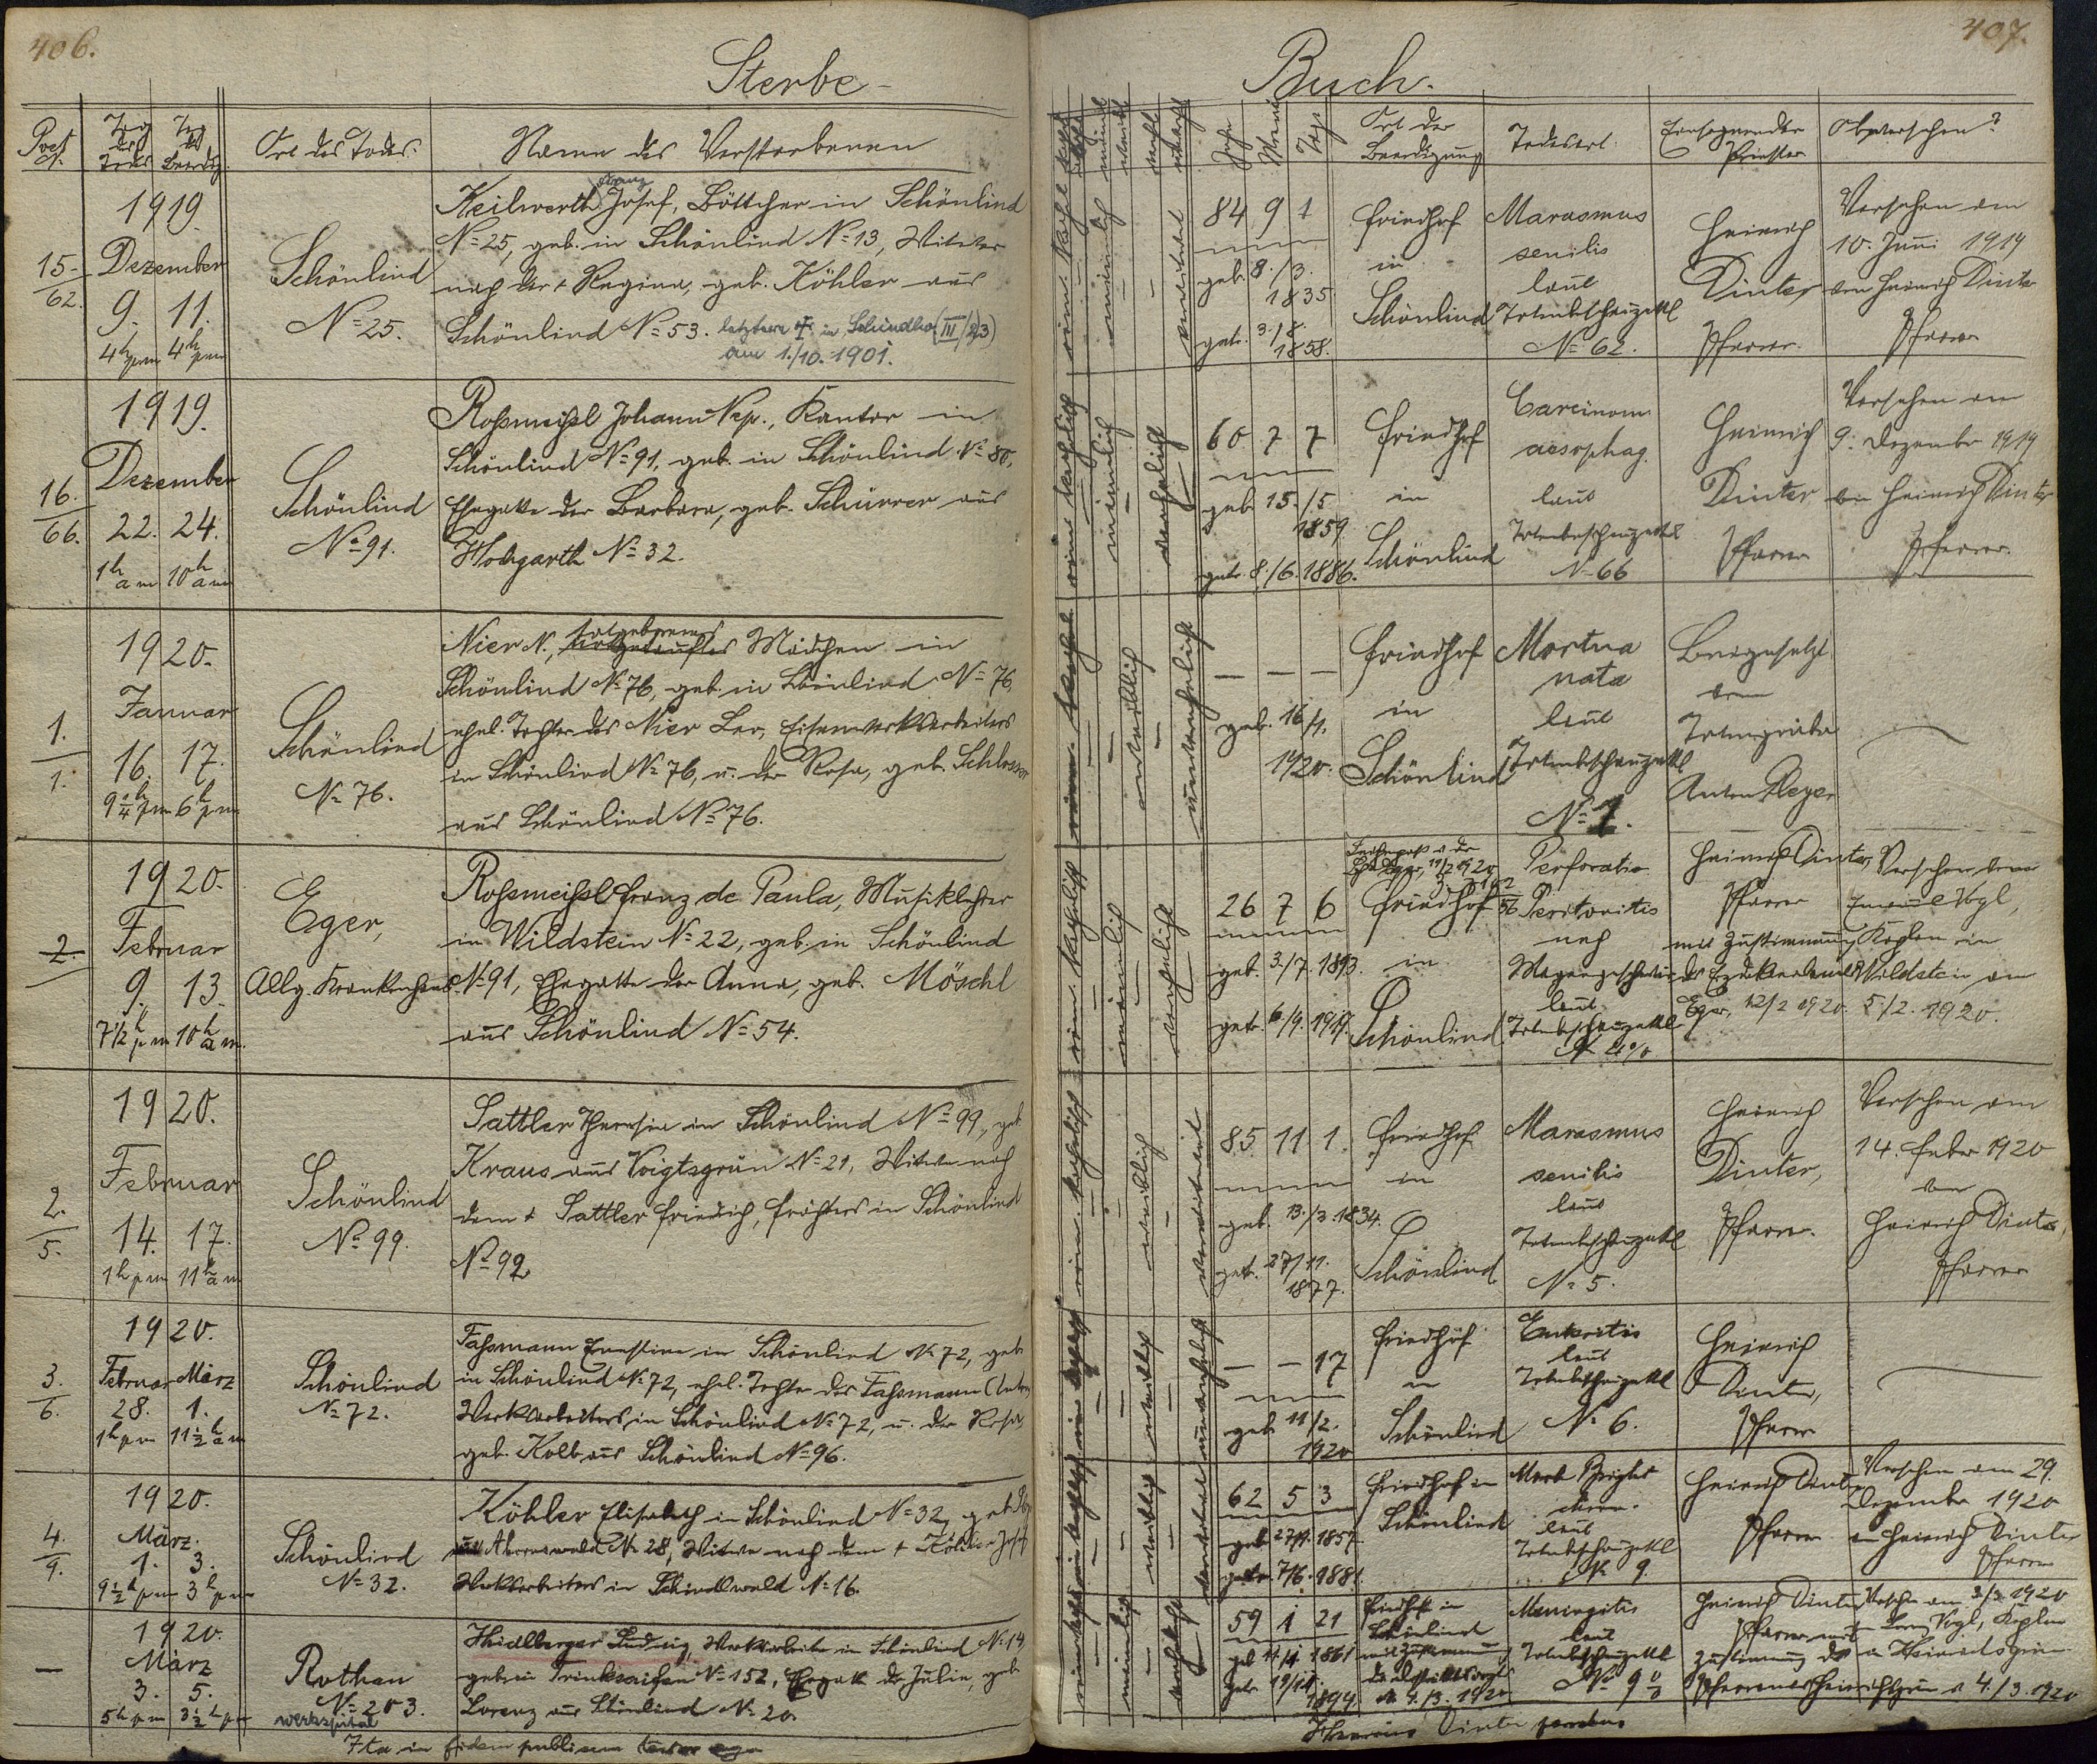 406.
407.
Sterbe-
Buch.
Post N.
Tag des Todes
Tag der Beerdig.
Ort des Todes.
Name des Verstorbenen
Jahre
Monate
Tage
Ort der Beerdigung
Todesart.
Einsegnender Priester
Ob versehen?
1919
15. / 62.
Dezember
9. 11.
4h pm 4h pm
Schönlind
N=25.
Franz
Keilwerth Josef, Böttcher in Schönlind
N=25, geb. in Schönlind N=13, Witwer
nach der + Regina, geb. Köhler aus
Schönlind N=53. letztere +. in Schindlw. (III/23)
am 1./10. 1901.
männlich
verwitwet
84 9 1
geb. 8./3.
1835.
getr. 3./8.
1858.
Friedhof
in
Schönlind
Marasmus
senilis
laut
Totenbeschauzettl
N=62.
Heinrich
Dinter
Pfarrer.
Versehen am
10. Juni 1919
von Heinrich Dinter
Pfarrer
1919.
16. / 66.
Dezember
22. 24.
1h am 10h am
Schönlind
No 91.
Roßmeißl Johann Nep., Kantor in
Schönlind N=91, geb. in Schönlind N=80,
Ehegatte der Barbara, geb. Schürrer aus
Hochgarth N=32.
männlich
verehelicht
60 7 7
geb. 15./5.
1859.
getr. 8./6. 1886.
Friedhof
in
Schönlind
Carcinom
aesophag.
laut
Totenbeschauzettl
N=66
Heinrich
Dinter
Pfarrer
Versehen am
9. Dezember 1919
von Heinrich Dinter
Pfarrer.
1920.
1. / 1.
Januar
16. 17.
9 1/4 h pm 6h pm
Schönlind
N=76.
totgeborenes
Nier N., notgetauftes Mädchen in
Schönlind N=76, geb. in Schönlind N=76,
ehel. Tochter des Nier Leo, Eisenwerksarbeiters
in Schönlind N=76, u. der Rosa, geb. Schlosser
aus Schönlind N=76.
weiblich
unverehelicht
— — —
geb. 16/1.
1920.
Friedhof
in
Schönlind
Mortua
nata
laut
Totenbeschauzettl
N=1.
Beigesetzt
vom
Totengräber
Anton Pleyer
1920.
2.
Februar
9. 13.
7 1/2 h pm 10h am.
Eger,
Allg. Krankenhaus.
Roßmeißl Franz de Paula, Musiklehrer
in Wildstein N=22, geb. in Schönlind
N=91, Ehegatte der Anna, geb. Möschl
aus Schönlind N=54.
männlich
verehelicht
26 7 6
geb. 3./7. 1893.
getr. 6/9. 1919.
Friedhof
in
Schönlind
Perforatio
Peritonitis
nach
Magengeschwür
laut
Totenbeschauzettl
Heinrich Dinter,
Pfarrer
mit Zustimmung
des Erzdekanates
Eger, 12/2 1920.
Versehen von
Vogl,
Kaplan in
Wildstein am
5./2. 1920.
1920.
2. / 5.
Februar
14. 17.
1h pm 11h am
Schönlind
No 99.
Sattler Theresia in Schönlind N=99, geb.
Kraus aus Voigtsgrün N=21, Witwe nach
dem + Sattler Friedrich, Frächters in Schönlind
No 92.
weiblich
verwitwet
85 11 1.
geb. 13./3. 1834.
getr. 27/11.
1877.
Friedhof
in
Schönlind
Marasmus
senilis
laut
Totenbeschauzettl
N=5.
Heinrich
Dinter,
Pfarrer.
Versehen am
14. Feber 1920
von
Heinrich Dinter,
Pfarrer
1920.
3. / 6.
Februar März
28. 1.
1h pm 11 1/2 h am
Schönlind
N=72.
Faßmann Ernestine in Schönlind N=72, geb.
in Schönlind N=72, ehel. Tochter des Faßmann Anton
Werksarbeiters, in Schönlind N=72, u. der Rosa,
geb. Kolb aus Schönlind N=96.
weiblich
unverehelicht
— — 17
geb. 11/2.
1920
Friedhof
in
Schönlind
Enteritis
laut
Totenbeschauzettl
N=6.
Heinrich
Dinter,
Pfarrer
1920.
4. / 9.
März.
1. 3.
9 1/2 h pm 3h pm
Schönlind
N=32.
Köhler Elisabeth in Schönlind N=32, geb.
aus Ahornswald N=28, Witwe nach dem + Köhler Josef
Werksarbeiters in Schindlwald N=16.
weiblich
verwitwet
62 5 3
1857.
getr. 7/6. 1881
Friedhof in
Schönlind
Morb. Brighti
chron.
laut
Totenbeschauzettl
N=9.
Heinrich Dinter
Pfarrer
Versehen am 29.
Dezember 1920
von Heinrich Dinter
Pfarrer
1920.
—
März
3. 5.
5h pm 3 1/2 h pm
Rothau
N=203.
Werkspital
Heidlberger Ludwig, Werksarbeiter in Schönlind N=14
geb. in Trinksaifen N=152, Ehegatte der Julia, geb.
Lorenz aus Schönlind N=20.
männlich
verehelicht
59 1 21
1861
1894.
Friedhof in
Schönlind
mit Zustimmung
4./3. 1920
Meningitis
laut
Totenbeschauzettl
Heinrich Dinter
Pfarrer mit
Zustimmung des
Pfarramtes Heinrichsgrün v. 4./3. 1920
Versehen am 3/3 1920
Vogl, Kaplan
in Heinrichsgrün
Ita in fidem publicam testor ego
Henricus Dinter parochus